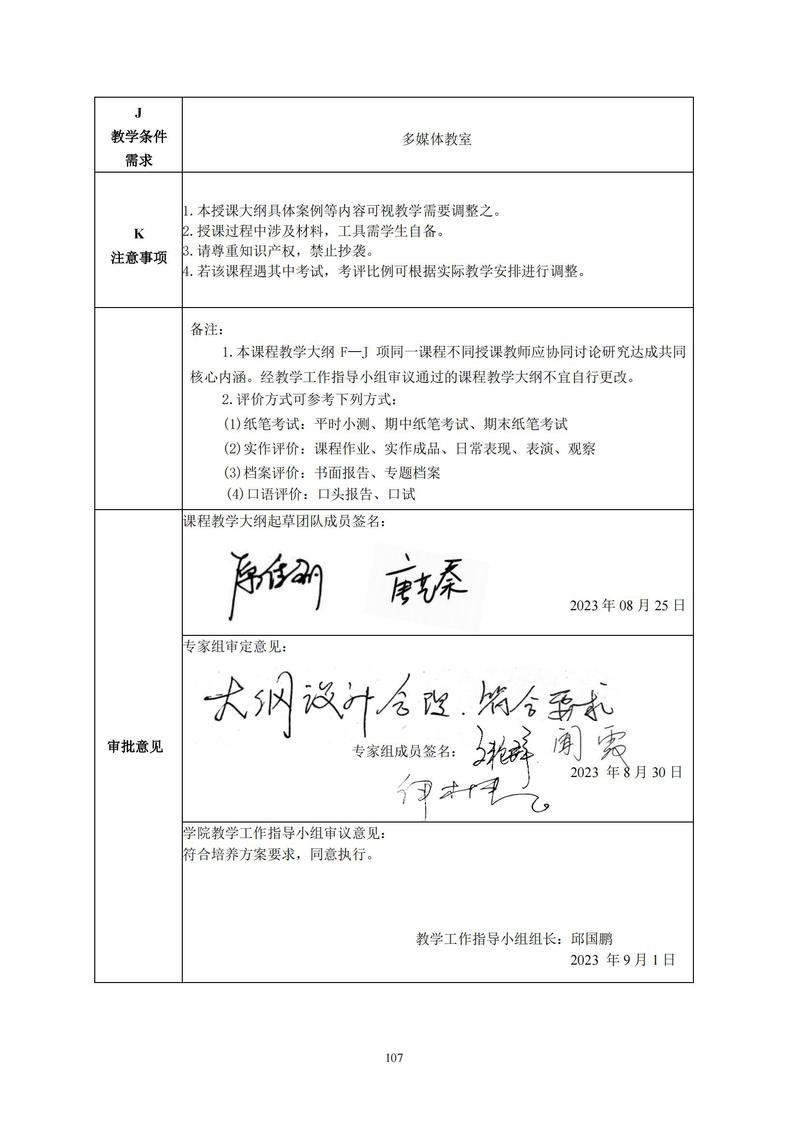 J
教学条件
需求
多媒体教室
K
注意事项
1.本授课大纲具体案例等内容可视教学需要调整之。
2.授课过程中涉及材料，工具需学生自备。
3.请尊重知识产权，禁止抄袭。
4.若该课程遇其中考试，考评比例可根据实际教学安排进行调整。
备注：
1.本课程教学大纲 F—J 项同一课程不同授课教师应协同讨论研究达成共同
核心内涵。经教学工作指导小组审议通过的课程教学大纲不宜自行更改。
2.评价方式可参考下列方式：
(1)纸笔考试：平时小测、期中纸笔考试、期末纸笔考试
(2)实作评价：课程作业、实作成品、日常表现、表演、观察
(3)档案评价：书面报告、专题档案
(4)口语评价：口头报告、口试
审批意见
课程教学大纲起草团队成员签名：
2023 年 08 月 25 日
专家组审定意见：
大纲设计合理.符合要求
专家组成员签名：
闻霞
2023 年 8 月 30 日
学院教学工作指导小组审议意见：
符合培养方案要求，同意执行。
教学工作指导小组组长：邱国鹏
2023 年 9 月 1 日
107